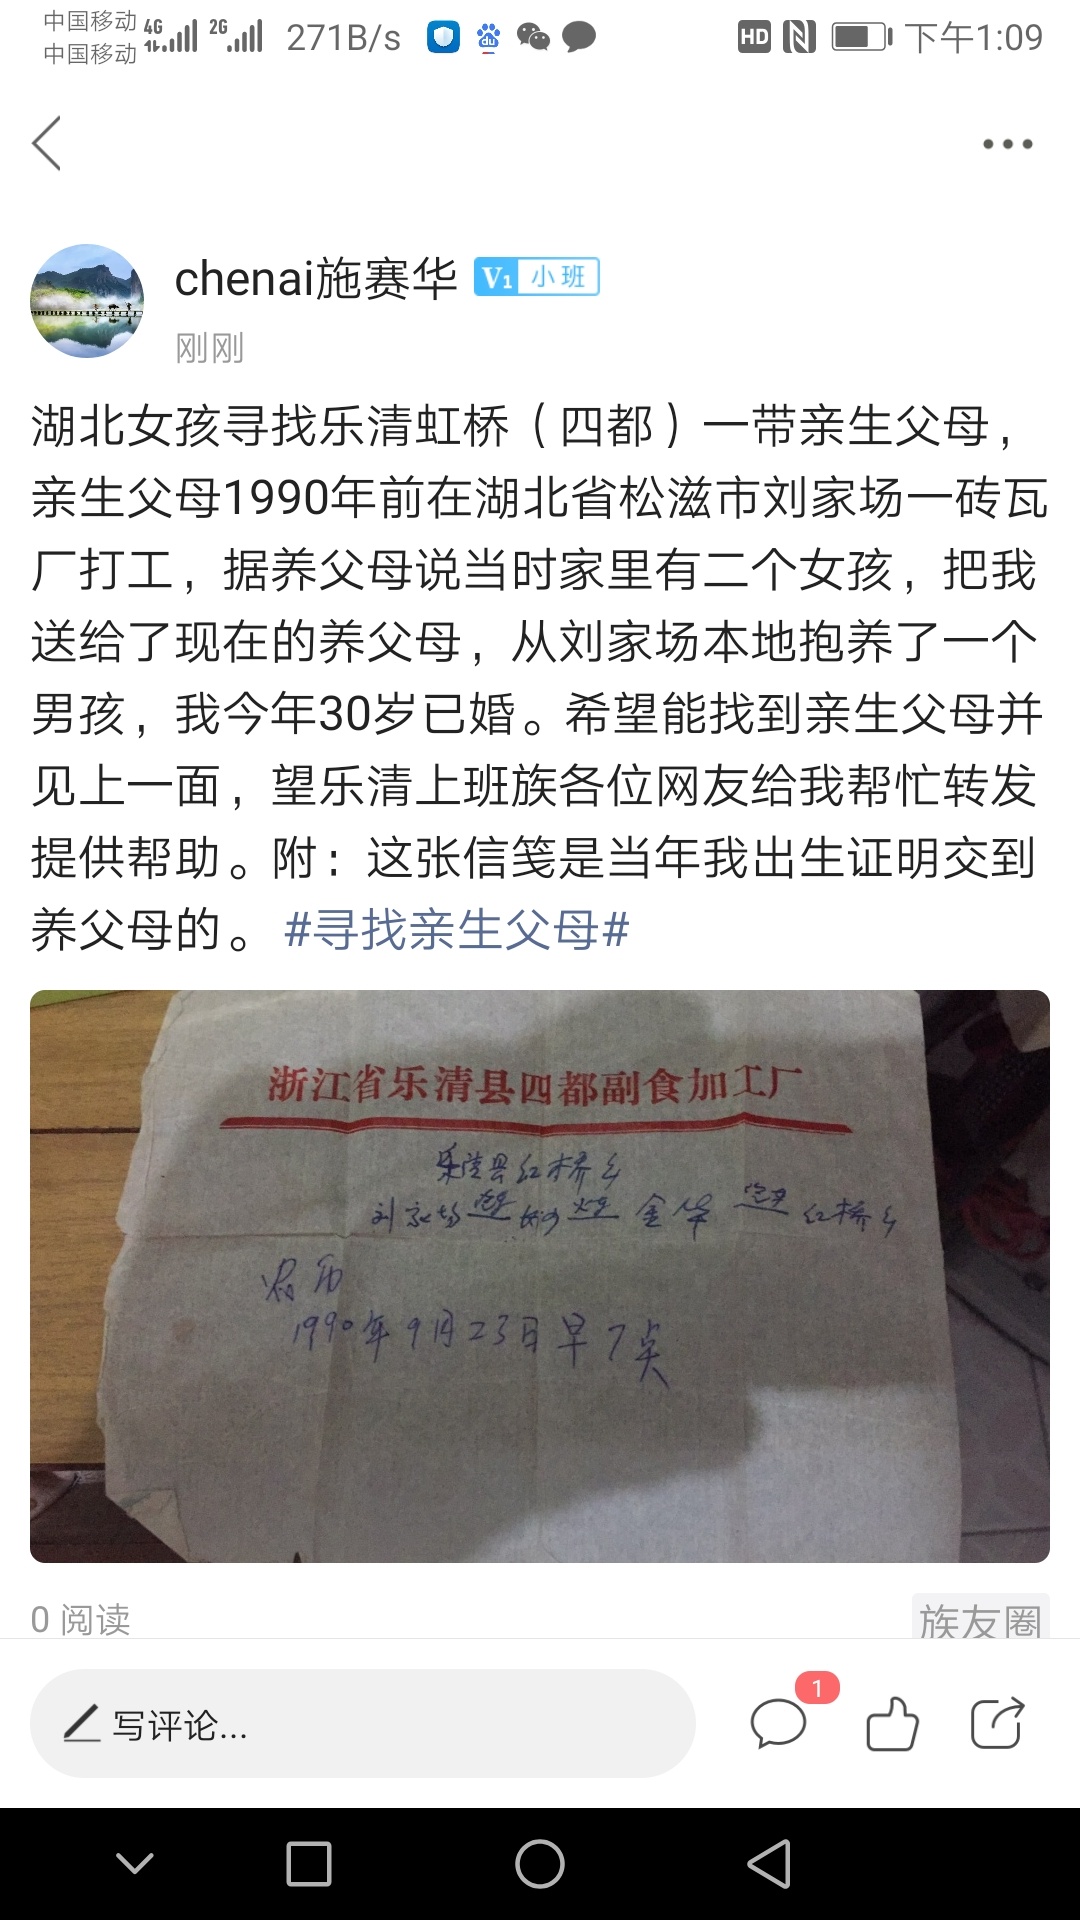 中国移动 4G 2G 271B/s HD 下午1:09
中国移动
chenai施赛华 V1 小班
刚刚
湖北女孩寻找乐清虹桥（四都）一带亲生父母，
亲生父母1990年前在湖北省松滋市刘家场一砖瓦
厂打工，据养父母说当时家里有二个女孩，把我
送给了现在的养父母，从刘家场本地抱养了一个
男孩，我今年30岁已婚。希望能找到亲生父母并
见上一面，望乐清上班族各位网友给我帮忙转发
提供帮助。附：这张信笺是当年我出生证明交到
养父母的。#寻找亲生父母#
浙江省乐清县四都副食加工厂
乐清县红桥乡
刘家场 金华 红桥乡
农历
1990年9月23日早7点
0 阅读
族友圈
写评论...
1